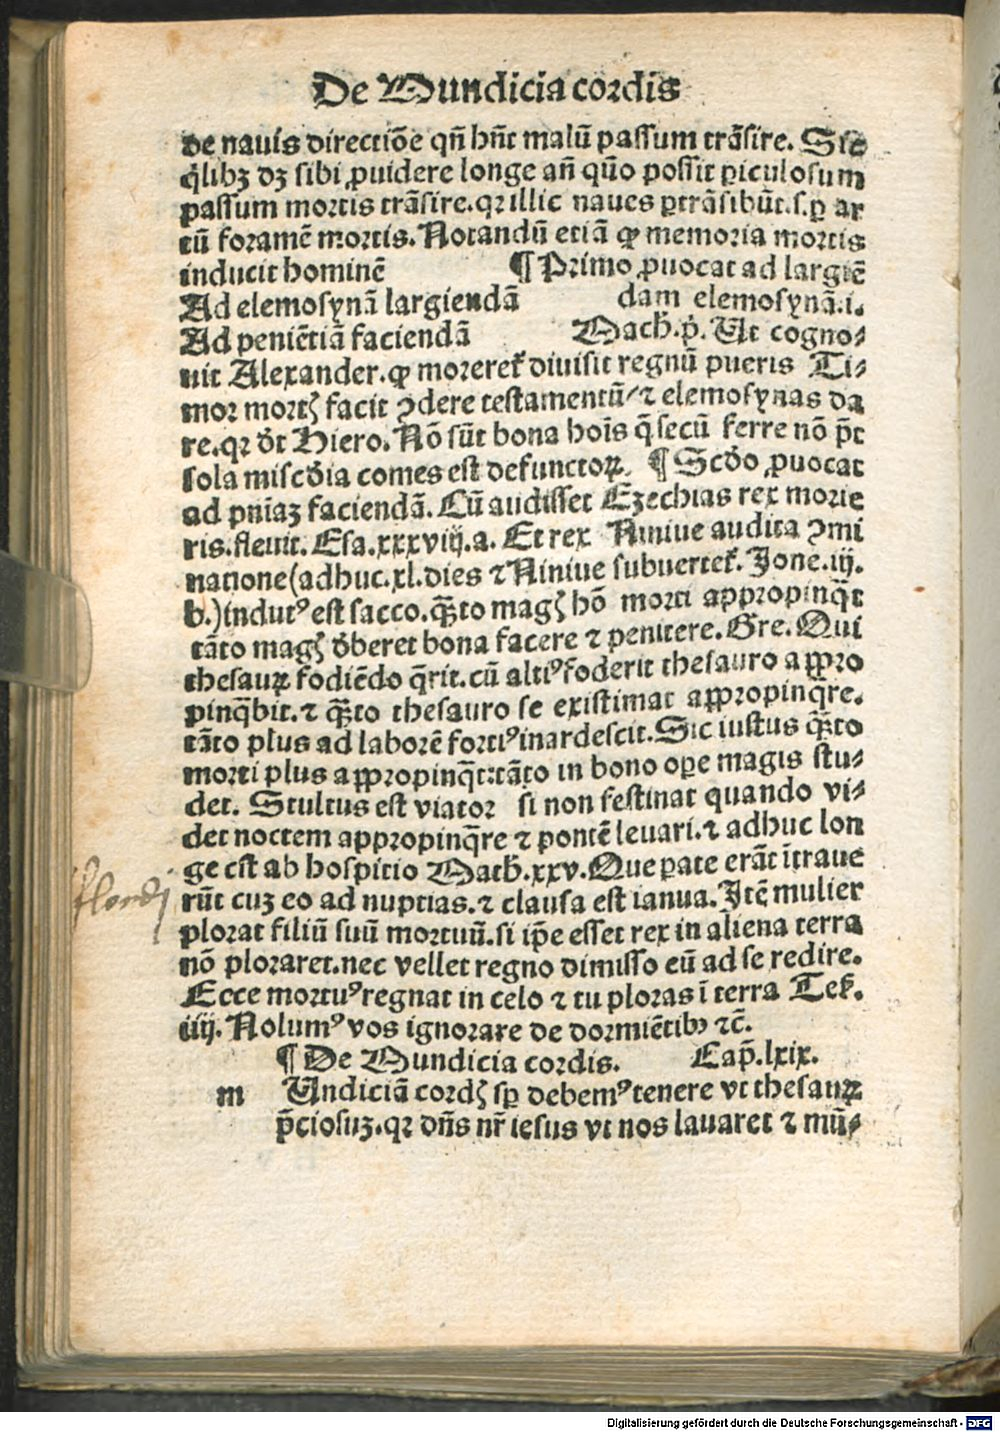 De Mundicia cordis
de nauis directiōe qn̄ hn̄t malū passum trāsire. Sic
q̄libꝫ dꝫ sibi ꝓuidere longe an̄ quō possit ꝑiculosum
passum mortis trāsire. qꝛ illic naues ꝑtrāsibūt. s. ꝑ ar
tū foramē mortis. Notandū etiā ꝙ memoria mortis
inducit hominē ¶ Primo ꝓuocat ad largiē
Ad elemosynā largiendā dam elemosynā. i.
Ad peniētiā faciendā Mach̄. pͥ. Ut cogno⸗
uit Alexander. ꝙ moreret̄ diuisit regnū pueris Ti⸗
mor mortꝭ facit ꝯdere testamentū/ ⁊ elemosynas da
re. qꝛ dt̄ Hiero. Nō sūt bona hoīs q̄ secū ferre nō pt̄
sola miscd̄ia comes est defunctoꝝ. ¶ Scd̄o ꝓuocat
ad pn̄iaꝫ faciendā. Cū audisset Ezechias rex morie
ris. fleuit. Esa. xxxviij. a. Et rex Niniue audita ꝯmi
natione (adhuc. xl. dies ⁊ Niniue subuertet̄. Jone. iij.
b.) indutꝰ est sacco. q̄ꝫto magꝭ hō morti appropinq̄t
tāto magꝭ d̄beret bona facere ⁊ penitere. Gre. Qui
thesauꝝ fodiēdo q̄rit. cū altiꝰ foderit thesauro appro
pinq̄bit. ⁊ q̄ꝫto thesauro se existimat appropinq̄re.
tāto plus ad laborē fortiꝰ inardescit. Sic iustus q̄ꝫto
morti plus appropinq̄t: tāto in bono oꝑe magis stu⸗
det. Stultus est viator si non festinat quando vi⸗
det noctem appropinq̄re ⁊ pontē leuari. ⁊ adhuc lon
ge est ab hospitio Math̄. xxv. Que ꝑate erāt ītraue
rūt cuꝫ eo ad nuptias. ⁊ clausa est ianua. Itē mulier
plorat filiū suū mortuū. si ip̄e esset rex in aliena terra
nō ploraret. nec vellet regno dimisso eū ad se redire.
Ecce mortuꝰ regnat in celo ⁊ tu ploras ī terra Tes̄.
iiij. Nolumꝰ vos ignorare de dormiētibꝰ ⁊c̄.
¶ De Mundicia cordis. Cap̄. lxix.
m Undiciā cordꝭ sꝑ debemꝰ tenere vt thesauꝝ
p̄ciosuꝫ. qꝛ dn̄s nr̄ iesus vt nos lauaret ⁊ mū⸗
Digitalisierung gefördert durch die Deutsche Forschungsgemeinschaft - DFG